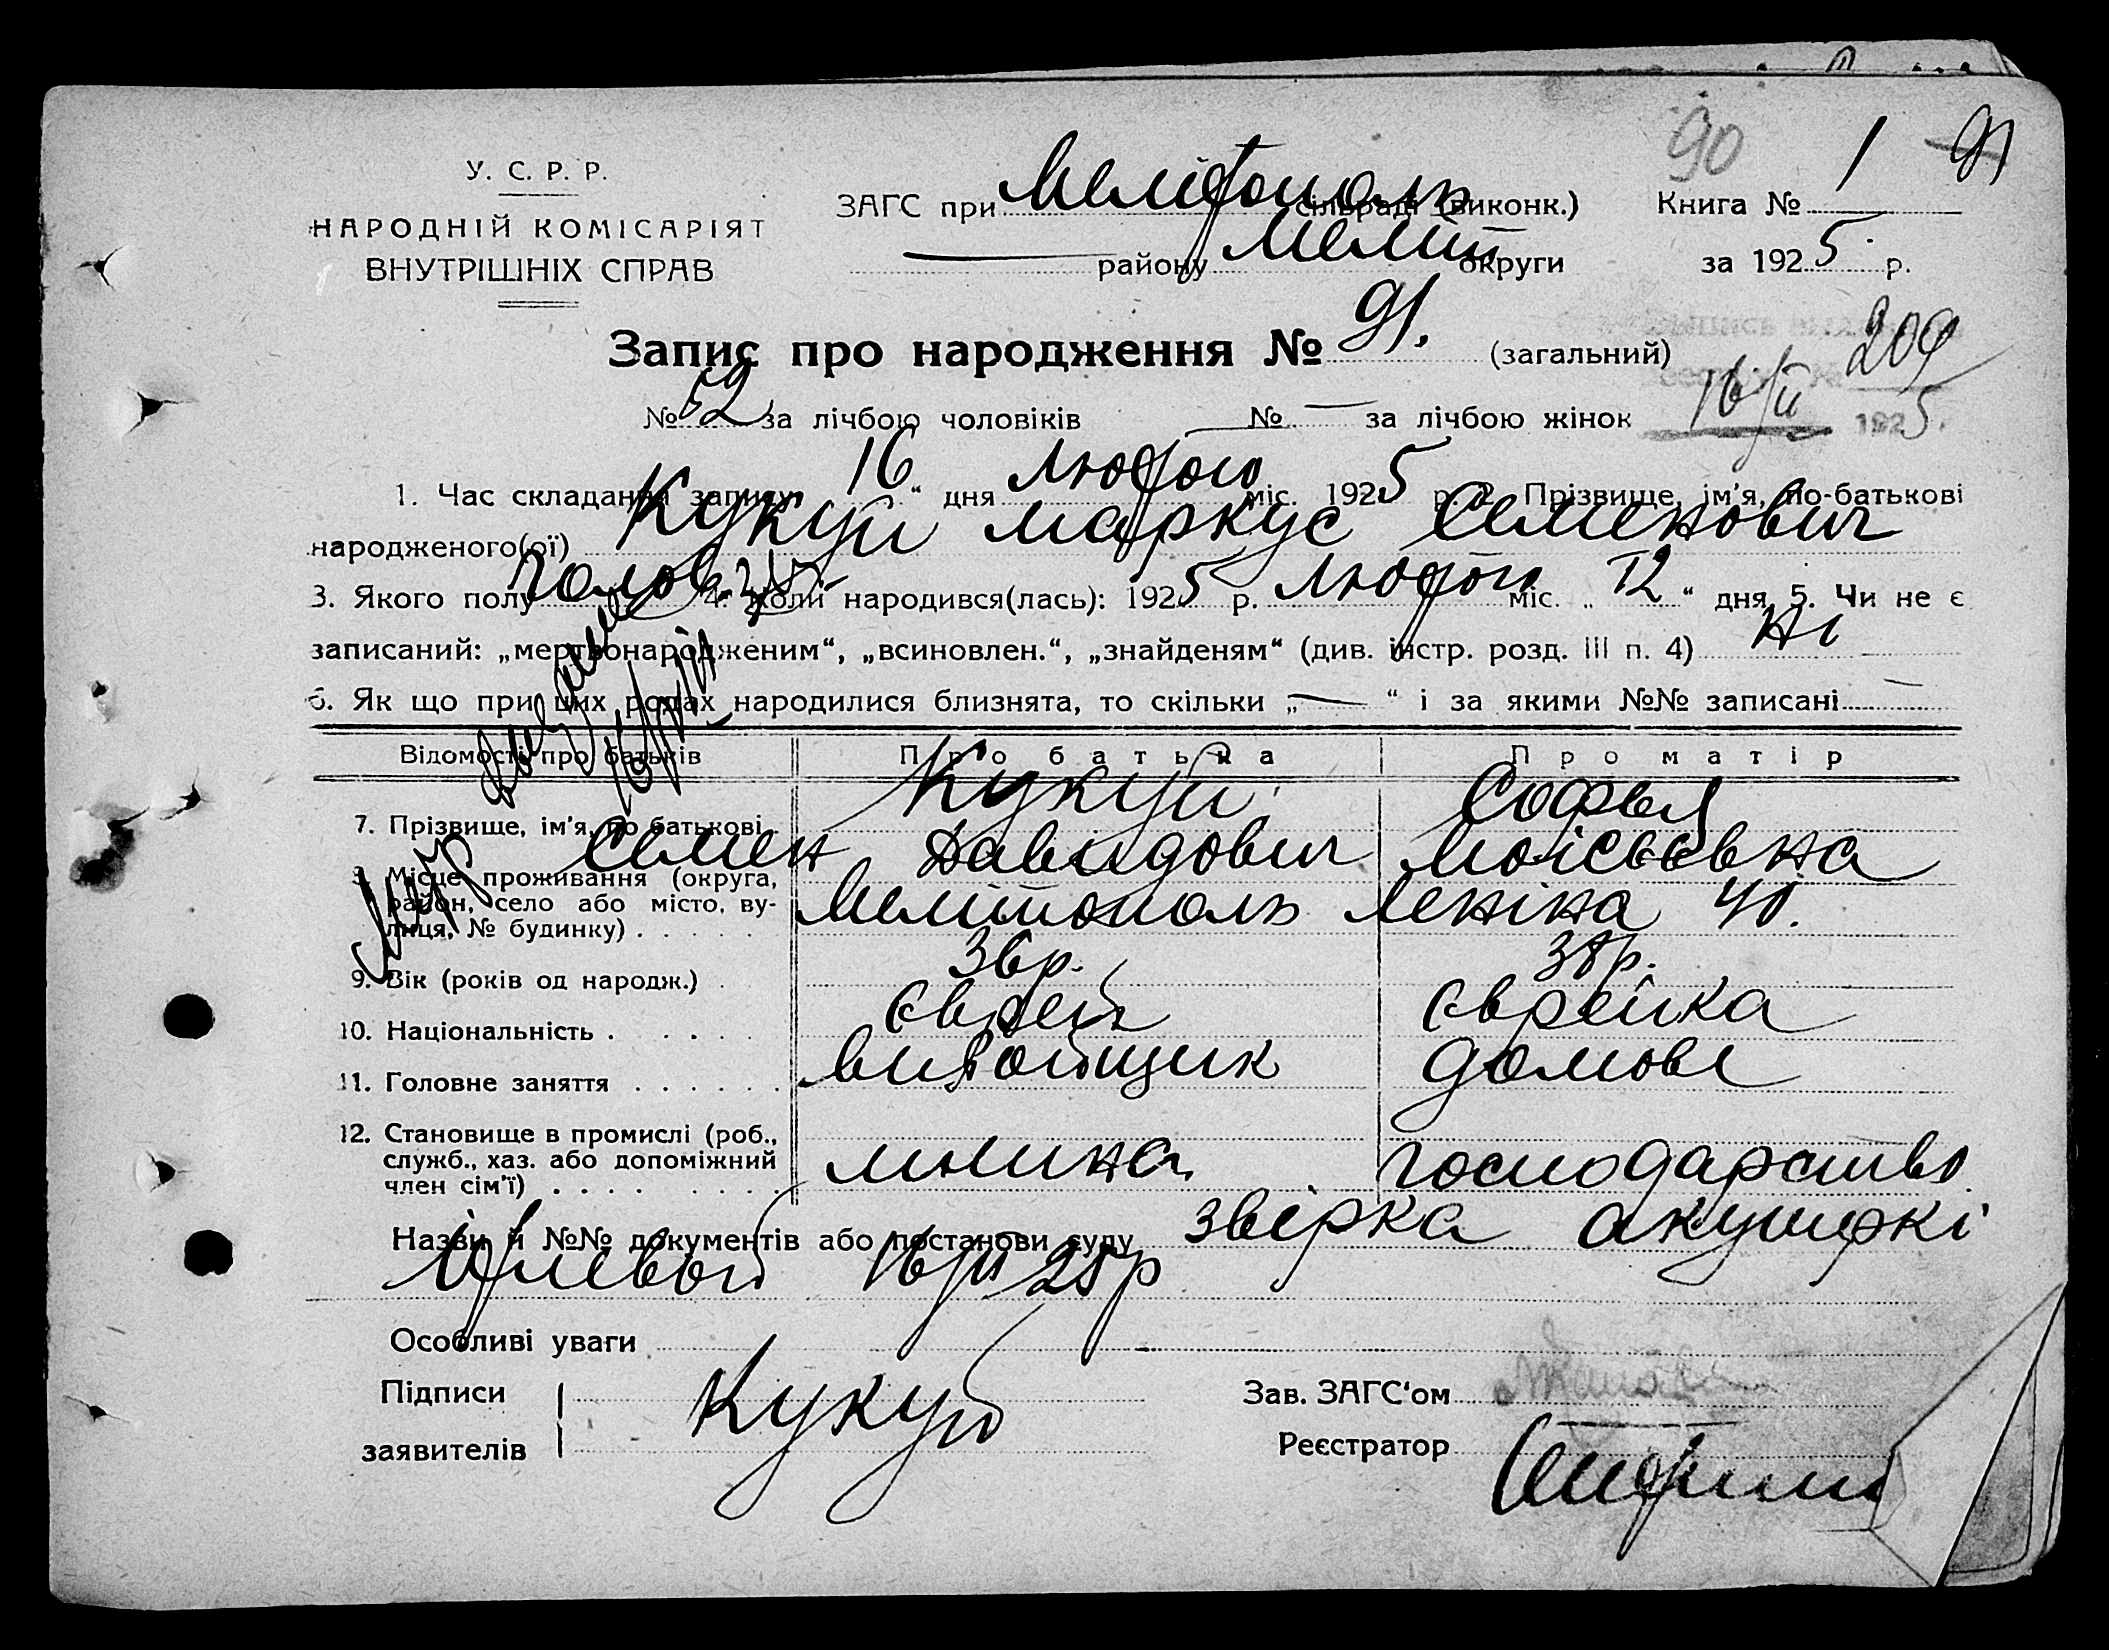 90 1 91
У. С. Р. Р.
НАРОДНІЙ КОМІСАРІЯТ
ВНУТРІШНІХ СПРАВ
ЗАГС при Мелітополь сільраді (виконк.) Книга №
району Меліт округи за 1925 р.
Запис про народження № 91. (загальний) 209
№ 52 за лічбою чоловіків № — за лічбою жінок 16/II 1925.
1. Час складання запису 16 “ дня Лютого міс. 1925 р. 2. Прізвище, ім’я, по-батькові
народженого(ої) Кукуй Маркус Семенович
3. Якого полу чолов. 4. Коли народився(лась): 1925 р. Лютого міс. „ 12 “ дня 5. Чи не є
записаний: „мертвонародженим“, „всиновлен.“, „знайденям“ (див. інстр. розд. III п. 4) Ні
6. Як що при цих родах народилися близнята, то скільки „ — “ і за якими №№ записані —
Відомості про батьків Про батька Про матір
7. Прізвище, ім’я, по батькові Кукуй Софья
Семен Давидович Моісеєвна
8. Місце проживання (округа,
район, село або місто, ву-
лиця, № будинку) . . . . . Мелітополь Леніна 40.
9. Вік (років од народж.) . 36р. 38р.
10. Національність . . . . . Єврей Єврейка
11. Головне заняття . . . . . . домове
12. Становище в промислі (роб.,
служб., хаз. або допоміжний
член сім’ї) . . . . . . . . господарство
Назви й №№ документів або постанови суду звірка акушеркі
16/II 25р
Особливі уваги
Підписи
заявителів Кукуй
Зав. ЗАГС‘ом
Реєстратор